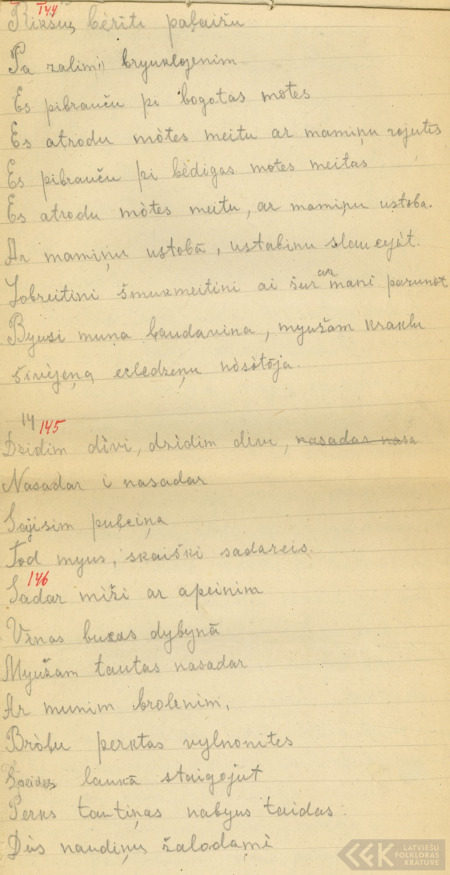 144
Rikšuš bērītu paļaižu
Pa zalimi bryuklojenim
Es pibrauču pi bogotas motes
Es atrodu mòtes meitu ar mamiņu rojutis
Es pibrauču pi bèdigas motes meitas
Es atrodu mòtes meitu, ar mamiņu ustobā.
Ar mamiņu ustobā, ustabiņu slauceját.
Lobreitini šmukmeitini ai šur ar mani parunot
Byusi muna ļaudaviņa, myužam kraklu
nòsòtòja.
14 145
Dzidim divi, dzidim divi, nasadas nasa
Nasadar i nasadar
Sajisim puļciņa
Tod myus, skaiški sadareis.
146
Sadar miži ar apeinim
Vìnas bucas dybynā
Myužam tautas nasadar
Ar munim brolenim.
Bròļu perktas vylnonites
Speides laukā staigojut
Perks tautiņas nabyus taidas
Dùs naudiņu žàlodami
LATVIEŠU
FOLKLORAS
KRĀTUVE